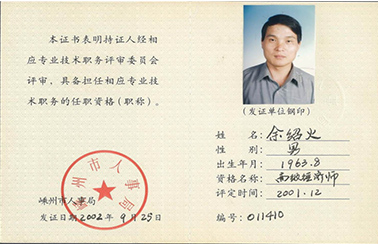 本证书表明持证人经相
应专业技术职务评审委员会
评审,具备担任相应专业技
术职务的任职资格(职称)。
嵊州市人事局
嵊州市人事局
发证日期2002年9月25日
(发证单位钢印)
姓名:余绍火
性别:男
出生年月:1963.8
资格名称:高级经济师
评定时间:2001.12
编号:011410